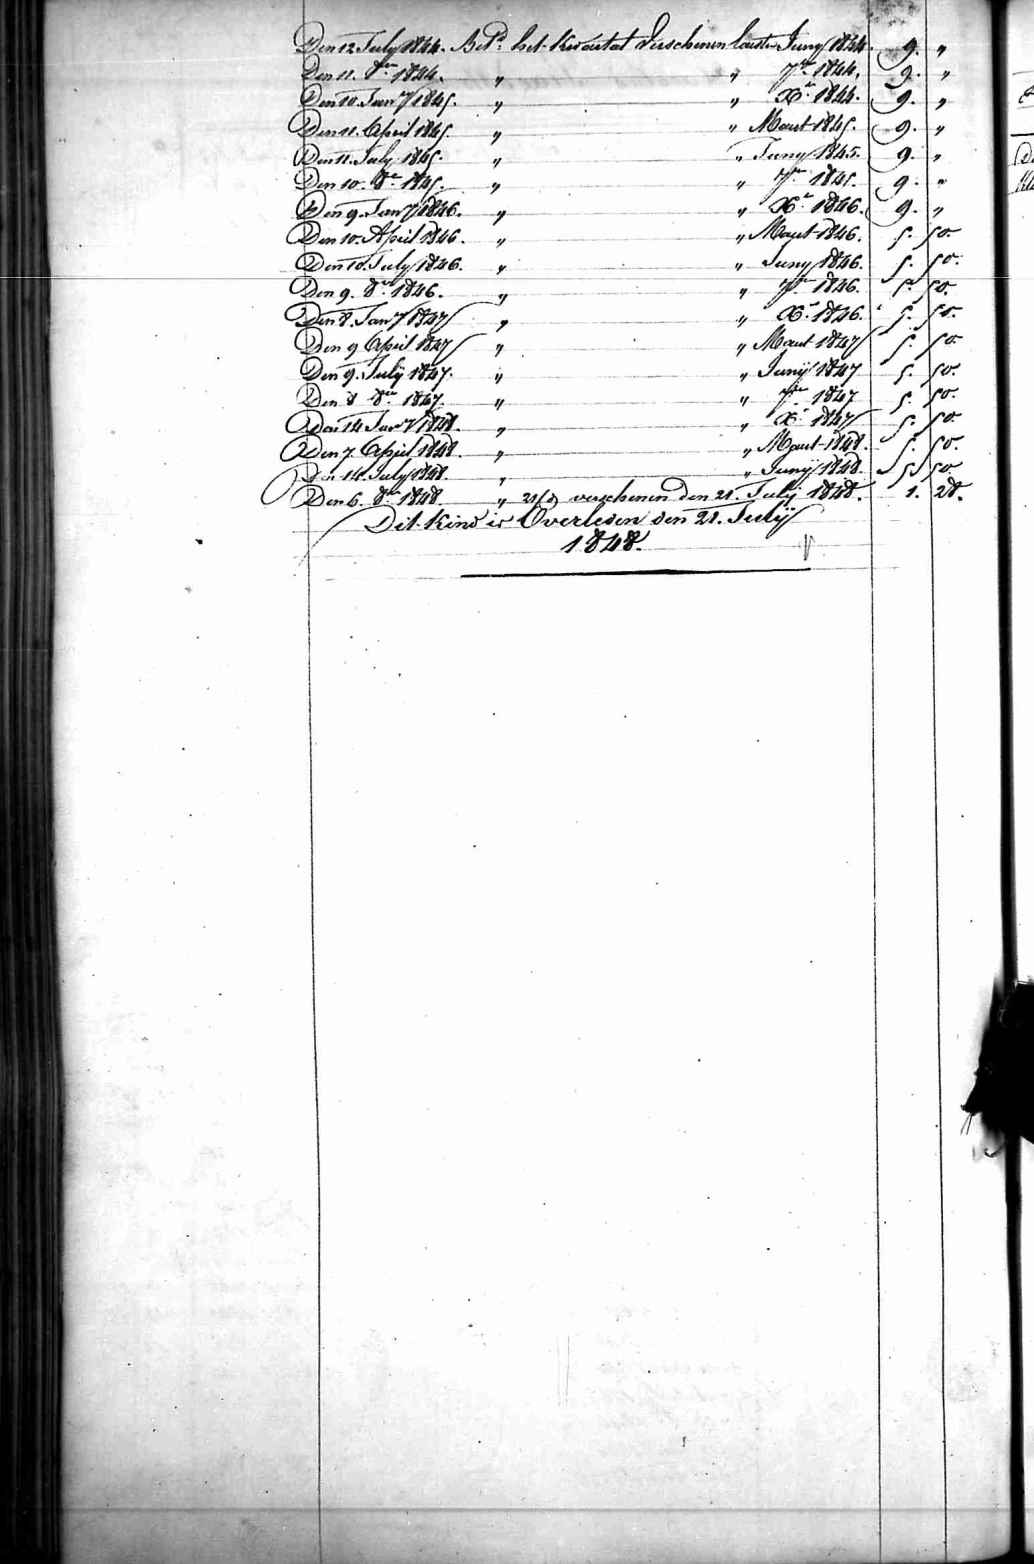 Den 12 July 1844. Betd. het Kwartal Verschenen laaste Juny 1844. 9. "
Den 11. 8ber 1844. " " 7ber 1844. 9. "
Den 10 Jany 1845. " " Xr. 1844. 9. "
Den 11. April 1845. " " Maart 1845. 9. "
Den 11. July 1845. " " Juny 1845. 9. "
Den 10. 8er 1845. " " 7ber 1845. 9. "
Den 9. Jany 1846. " " Xr 1846. 9. "
Den 10. April 1846. " " Maart 1846. 5. 50.
Den 10. July 1846. " " Juny 1846. 5. 50.
Den 9. 8er 1846. " " 7ber 1846. 5. 50.
Den 8. Jany 1847 " " Xr. 1846. 5. 50.
Den 9 April 1847 " " Maart 1847 5. 50.
Den 9. Julÿ 1847. " " Junÿ 1847 5. 50.
Den 8 8ber 1847. " " 7ber 1847 5. 50.
Den 14 Jany 1848. " " Xr 1847 5. 50.
Den 7. April 1848. " " Maart 1848. 5. 50.
Den 14. July 1848. " " Junÿ 1848. 5. 50
Den 6. 8ber 1848. " 21/d verschenen den 21. Julÿ 1848. 1. 28.
Dit Kind is Overleden den 21. Julÿ
1848.